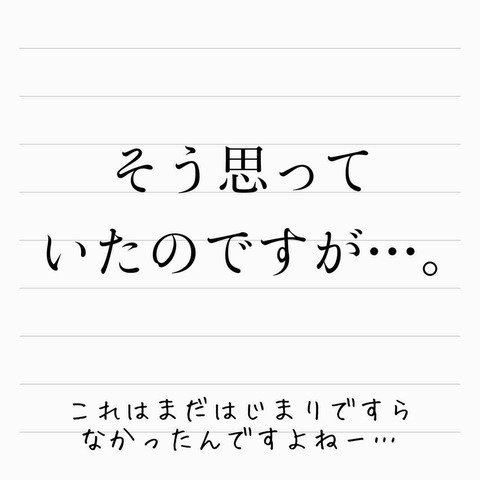 そう思って
いたのですが…。
これはまだはじまりですら
なかったんですよねー…